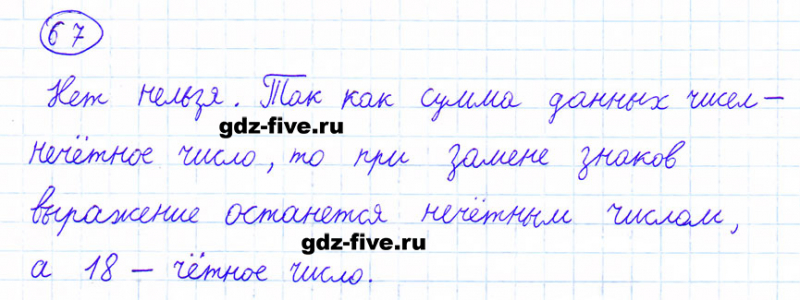 67
Нет нельзя. Так как сумма данных чисел –
gdz-five.ru
нечётное число, то при замене знаков
выражение останется нечётным числом,
gdz-five.ru
а 18 – чётное число.